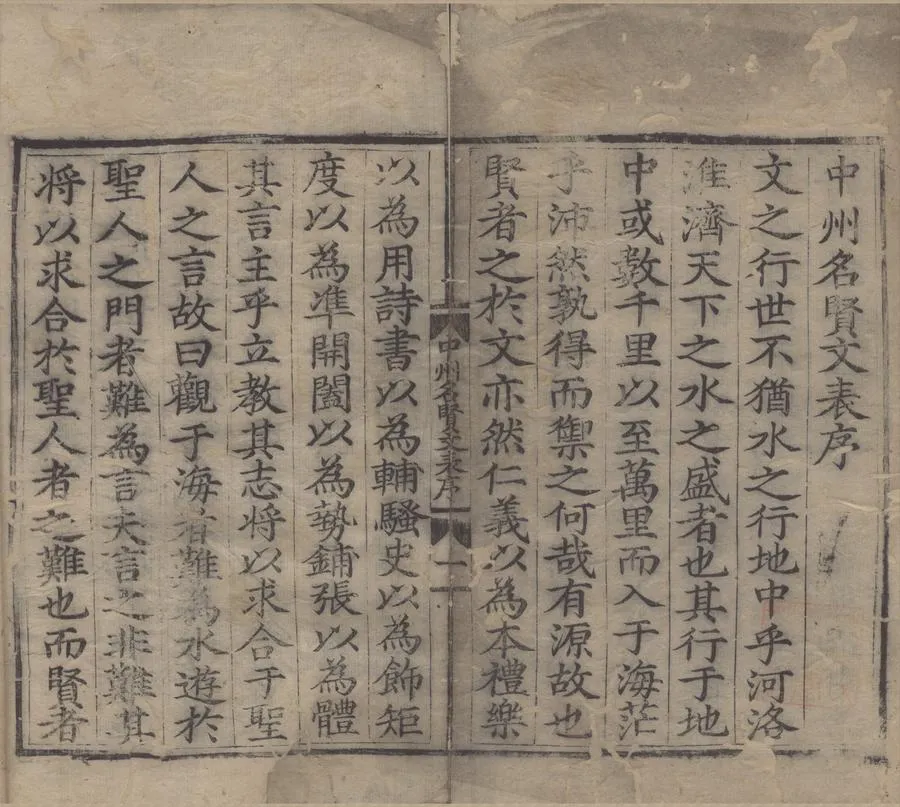 中州名賢文表序
文之行世不猶水之行地中乎河洛
淮濟天下之水之盛者也其行于地
中或數千里以至萬里而入于海茫
乎沛然孰得而禦之何哉有源故也
賢者之於文亦然仁義以為本禮樂
中州名賢文表序
一
以為用詩書以為輔騷史以為飾矩
度以為準開闔以為勢鋪張以為體
其言主乎立教其志將以求合于聖
人之言故曰觀于海者難為水遊於
聖人之門者難為言夫言之非難其
將以求合於聖人者之難也而賢者